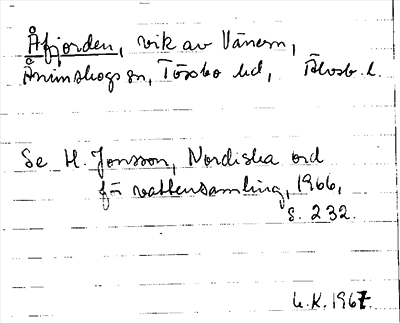 Åfjorden, vik av Vänern,
Ånimskogs sn, Tössbo hd, Älvsb. l.
Se H. Jonsson, Nordiska ord
för vattensamling, 1966,
s. 232.
U.K. 1967.